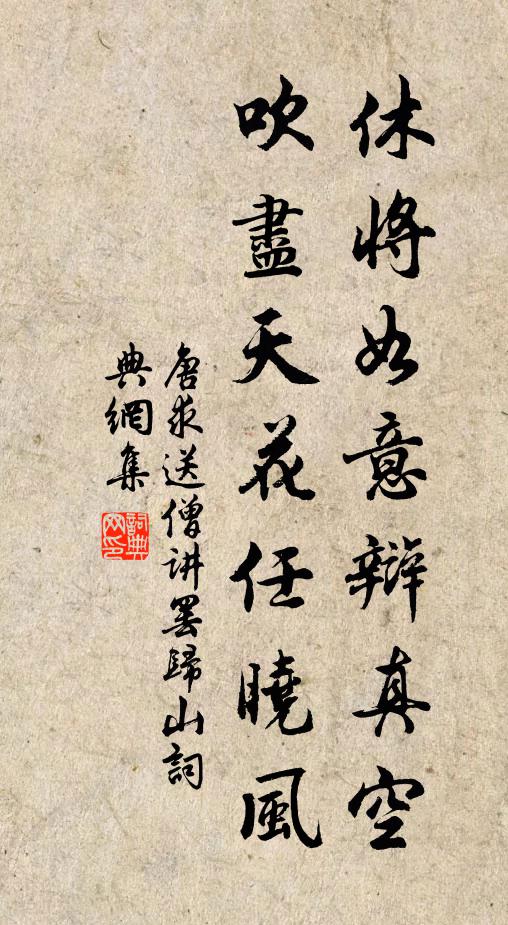 休將如意辯真空
吹盡天花任曉風
唐求送僧讲罢歸山詞
典網集
詞典网印